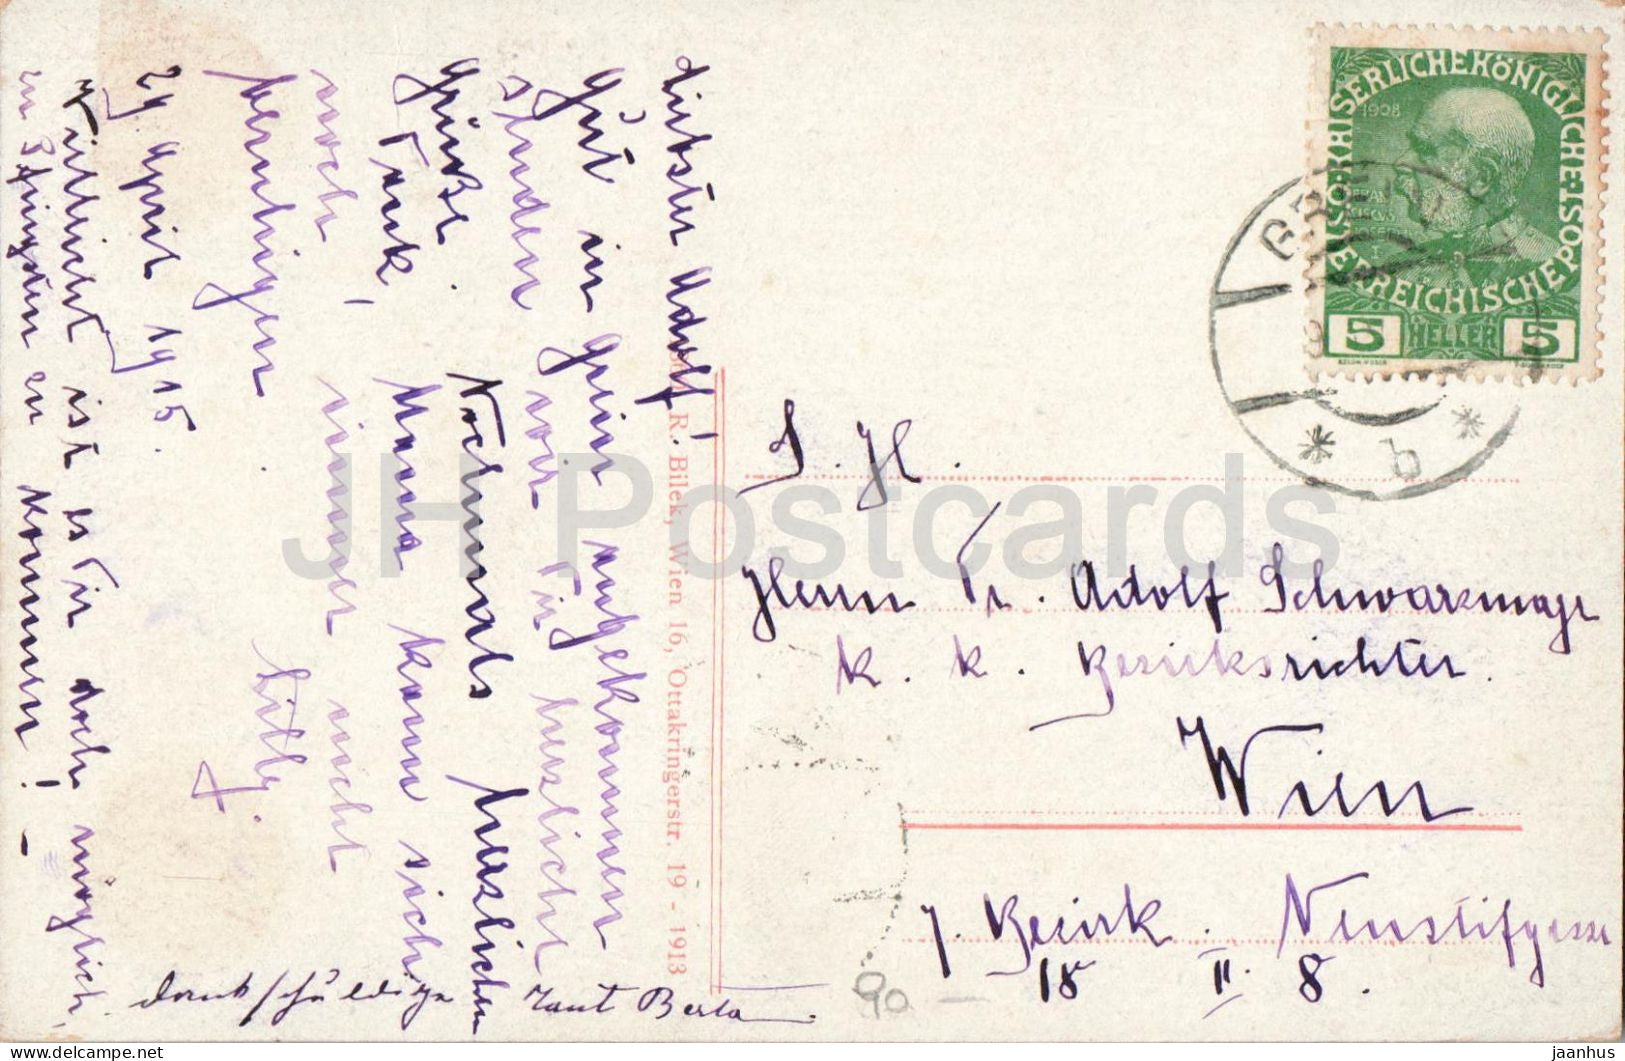 Liebster Adolf!
Gut in Grein angekommen
senden wir Dir herzlichst
Grüße. Nochmals herzlichen
Dank, Mama kann sich
noch immer nicht
beruhigen. Lilly.
29. April 1915.
Vielleicht ist es Dir doch möglich,
zu Pfingsten zu kommen! –
dankschuldige Tant Berta.
R. Bilek, Wien 16, Ottakringerstr. 19 - 1913
KAISERLICHE KÖNIGLICHE
OESTERREICHISCHE POST
1908
5 HELLER 5
GREIN
* b *
S. H.
Herrn Dr. Adolf Schwarzmayr
k. k. Bezirksrichter.
Wien
7. Bezirk. Neustiftgasse
18 II. 8.
90 –
JH Postcards
delcampe.net
jaanhus